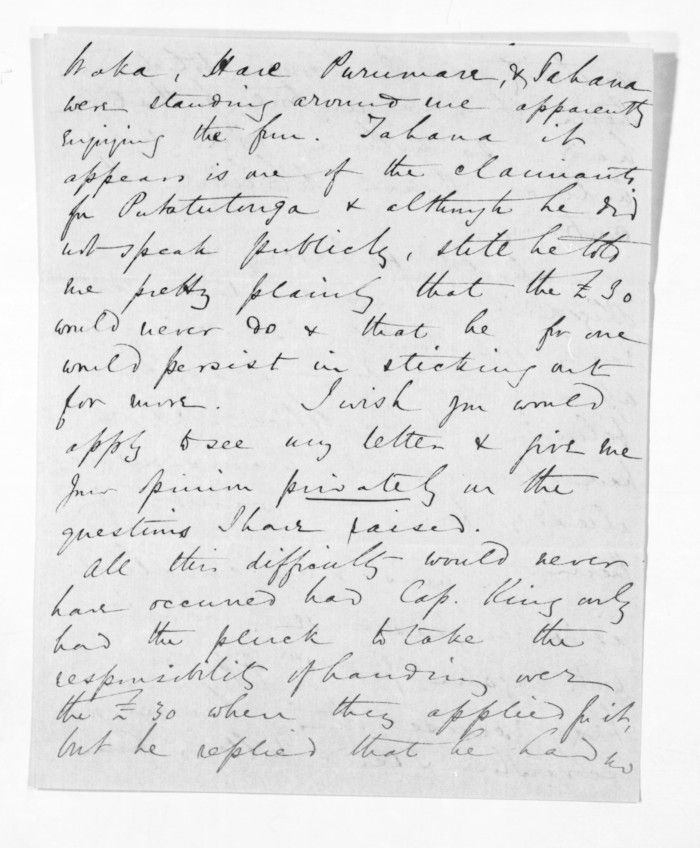 Waka, Hare Purumare, & Tahana
were standing around me apparently
enjoying the fun. Tahana it
appears is one of the claimants
for Putatutonga & although he did
not speak publicly, still he told
me pretty plainly that the £30
would never do & that he for one
would persist in sticking out
for more. I wish you would
apply to see my letter & give me
your opinion privately on the
questions I have raised.
All this difficulty would never
have occurred had Cap. King only
had the pluck to take the
responsibility of handing over
the £30 when they applied for it,
but he replied that he had no